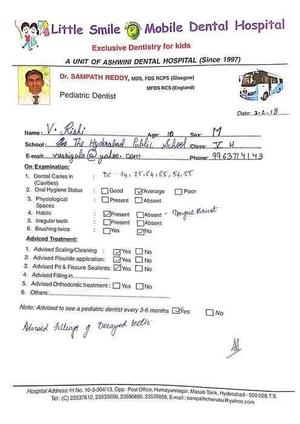 Little Smile Mobile Dental Hospital
Exclusive Dentistry for kids
A UNIT OF ASHWINI DENTAL HOSPITAL (Since 1997)
Dr. SAMPATH REDDY, MDS, FDS RCPS (Glasgow)
MFDS RCS (England)
Pediatric Dentist
Date: 2.2.18
Name: V. Rishi Age: 10 Sex: M
School: The Hyderabad Public School Class: V H
E-mail: @yahoo.com Phone: 9963714143
On Examination:
1. Dental Caries in (Cavities) : DC - 24, 25, 64, 65, 54, 55
2. Oral Hygiene Status : Good Average Poor
3. Physiological Spaces : Present Absent
4. Habits : Present Absent - Tongue thrust
5. Irregular teeth : Present Absent
6. Brushing twice : Yes No
Adviced Treatment:
1. Advised Scaling/Cleaning : Yes No
2. Advised Flouride application: Yes No
3. Advised Pit & Fissure Sealants: Yes No
4. Advised Filling in
5. Advised Orthodontic treatment : Yes No
6. Others:
Note: Advised to see a pediatric dentist every 3-6 months Yes No
Advised fillings of Decayed teeth
Hospital Address: H.No. 10-3-304/13, Opp: Post Office, Humayunnagar, Masab Tank, Hyderabad - 500 028.T.S.
Tel : (C) 23537612, 23535656, 23590690, 23535858, E-mail : sampathchenuku@yahoo.com